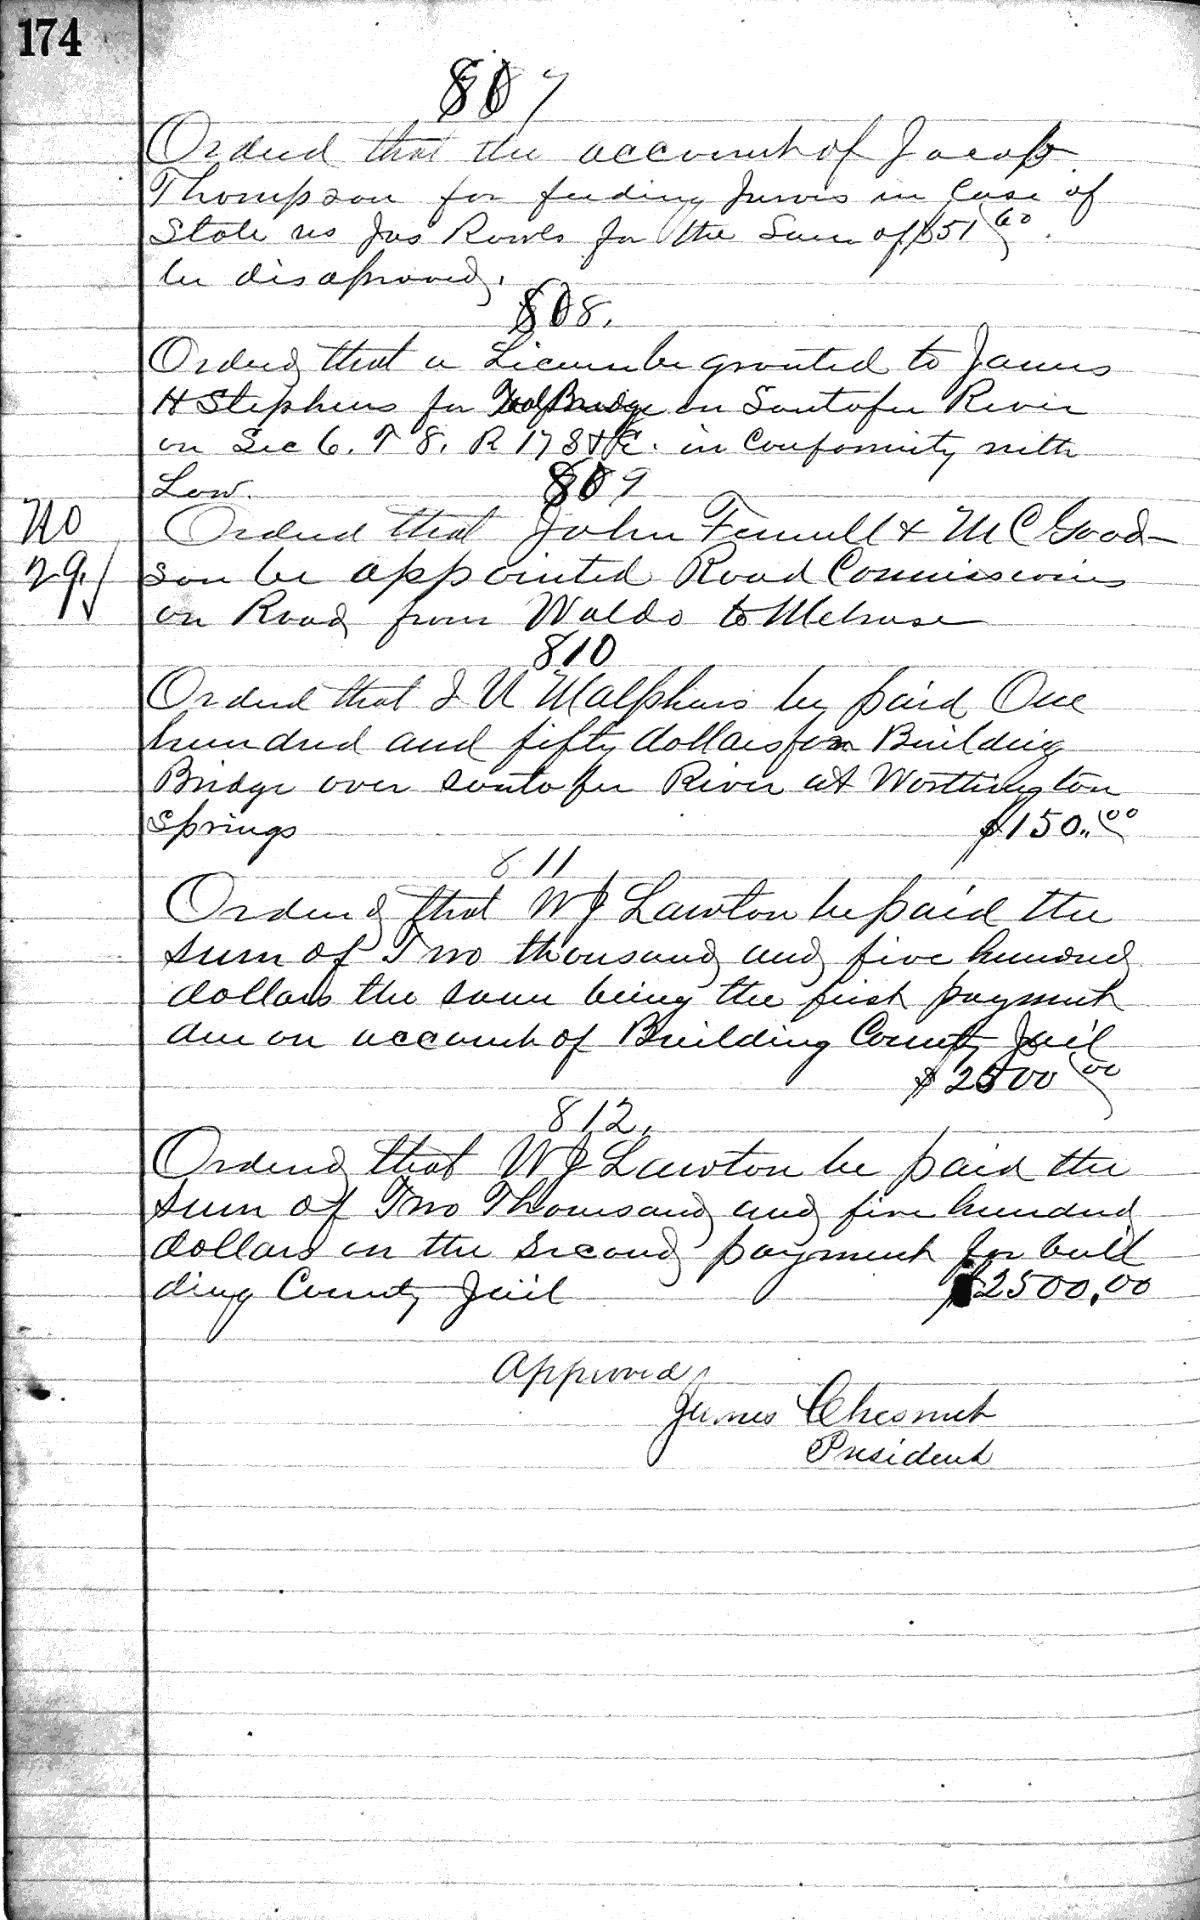 174
807
Ordered that the account of Jacob
Thompson for feeding Jurors in Case of
State vs Jas Rowls for the Sum of $51.60
be disaproved.
808.
Ordered that a License be granted to James
H Stephens for Toll Bridge on Santafee River
on Sec 6. T 8. R 17 S & E. in Conformity with
Law.
809
No Ordered that John Fennell & M C Good-
29 son be appointed Road Commissioners
on Road from Waldo to Melrose
810
Ordered that J U Malphurs be paid One
hundred and fifty dollars for Building
Bridge over Santafee River at Worthington
Springs $150.00
811
Ordered that W J Lawton be paid the
sum of Two thousand and five hundred
dollars the same being the first payment
due on account of Building County Jail
$2500 00
812.
Ordered that W J Lawton be paid the
sum of Two Thousand and five hundred
dollars on the second payment for buil
ding County Jail $2500.00
Approved
James Chesnut
President